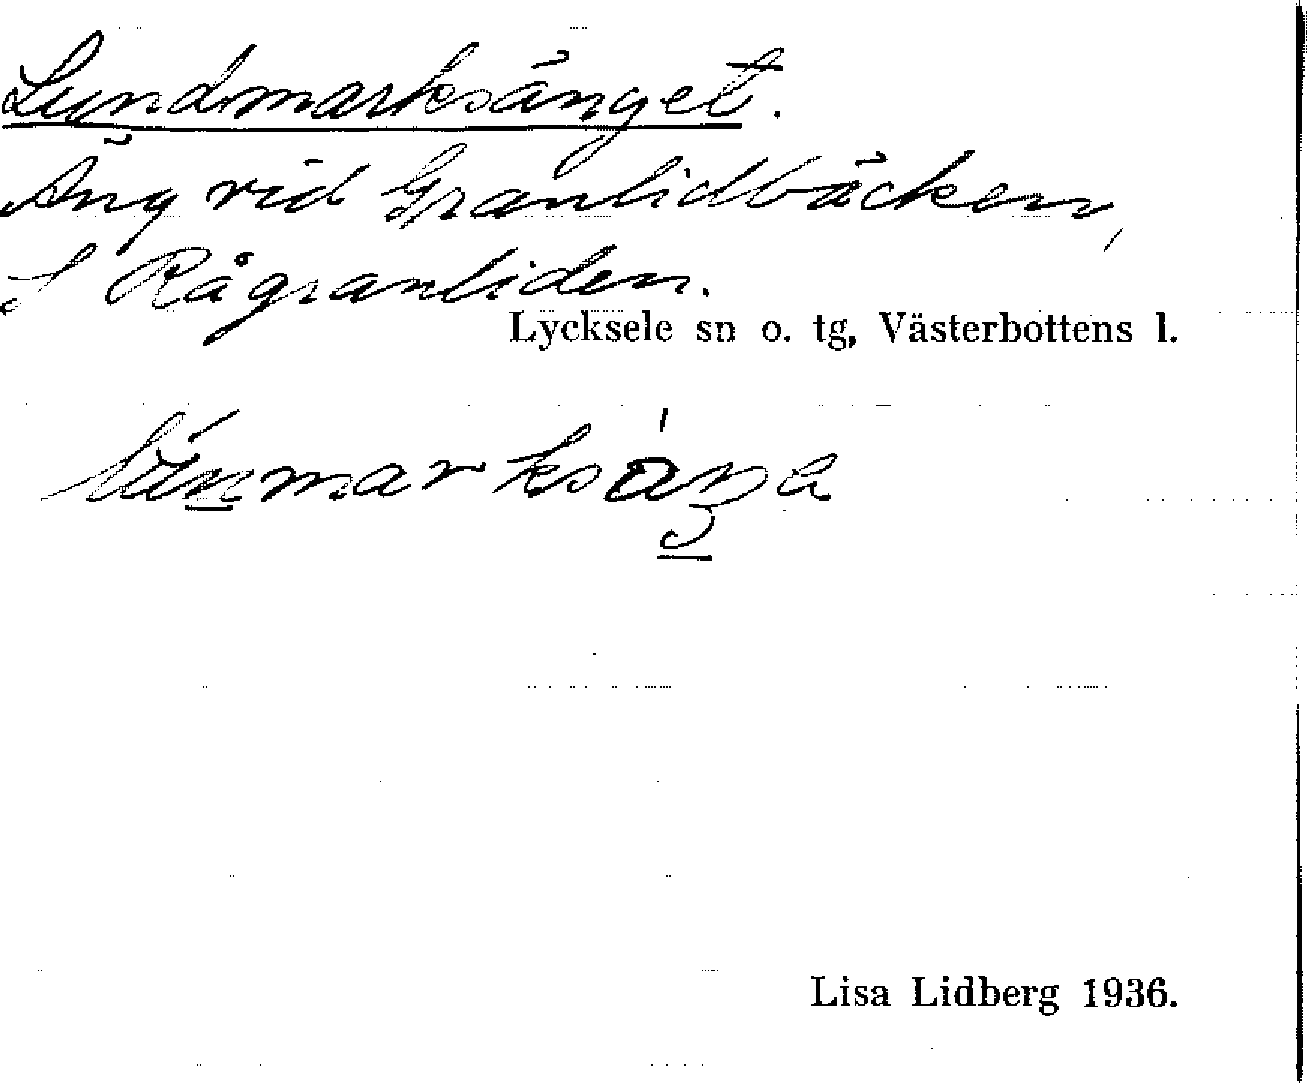 Lundmarksänget.
Äng vid Granlidbäcken,
S Rågranliden.
Lycksele sn o. tg, Västerbottens l.
Lisa Lidberg 1936.